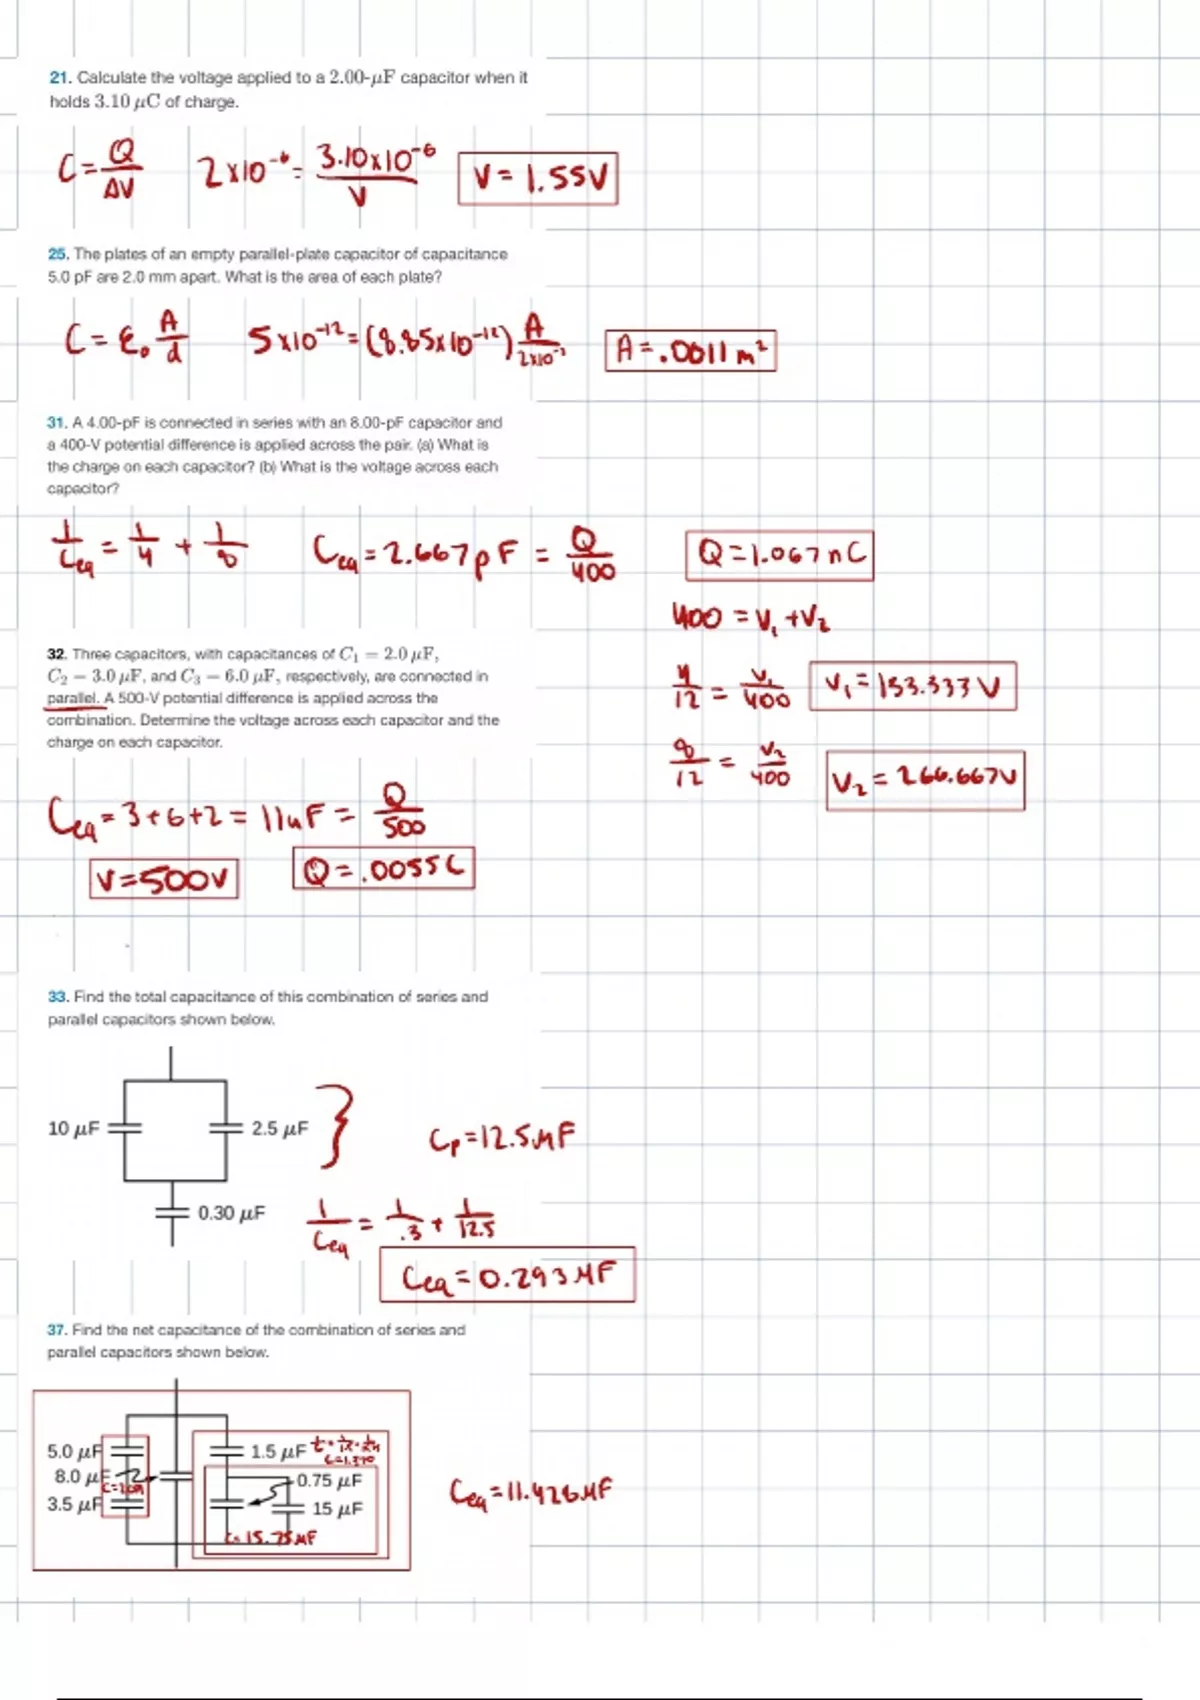 21. Calculate the voltage applied to a 2.00-μF capacitor when it
holds 3.10 μC of charge.
C = Q/ΔV 2x10⁻⁶ = 3.10x10⁻⁶/V V = 1.55V
25. The plates of an empty parallel-plate capacitor of capacitance
5.0 pF are 2.0 mm apart. What is the area of each plate?
C = ε₀ A/d 5x10⁻¹² = (8.85x10⁻¹²) A/2x10⁻³ A = .0011 m²
31. A 4.00-pF is connected in series with an 8.00-pF capacitor and
a 400-V potential difference is applied across the pair. (a) What is
the charge on each capacitor? (b) What is the voltage across each
capacitor?
1/Ceq = 1/4 + 1/8 Ceq = 2.667pF = Q/400 Q = 1.067nC
400 = V₁ + V₂
4/12 = V₁/400 V₁ = 133.333V
8/12 = V₂/400 V₂ = 266.667V
32. Three capacitors, with capacitances of C₁ = 2.0 μF,
C₂ = 3.0 μF, and C₃ = 6.0 μF, respectively, are connected in
parallel. A 500-V potential difference is applied across the
combination. Determine the voltage across each capacitor and the
charge on each capacitor.
Ceq = 3+6+2 = 11uF = Q/500
V=500V Q = .0055C
33. Find the total capacitance of this combination of series and
parallel capacitors shown below.
10 μF 2.5 μF } Cp = 12.5μF
0.30 μF 1/Ceq = 1/.3 + 1/12.5
Ceq = 0.293μF
37. Find the net capacitance of the combination of series and
parallel capacitors shown below.
5.0 μF 1.5 μF
8.0 μF 0.75 μF Ceq = 11.426μF
3.5 μF 15 μF
C= 15.75μF